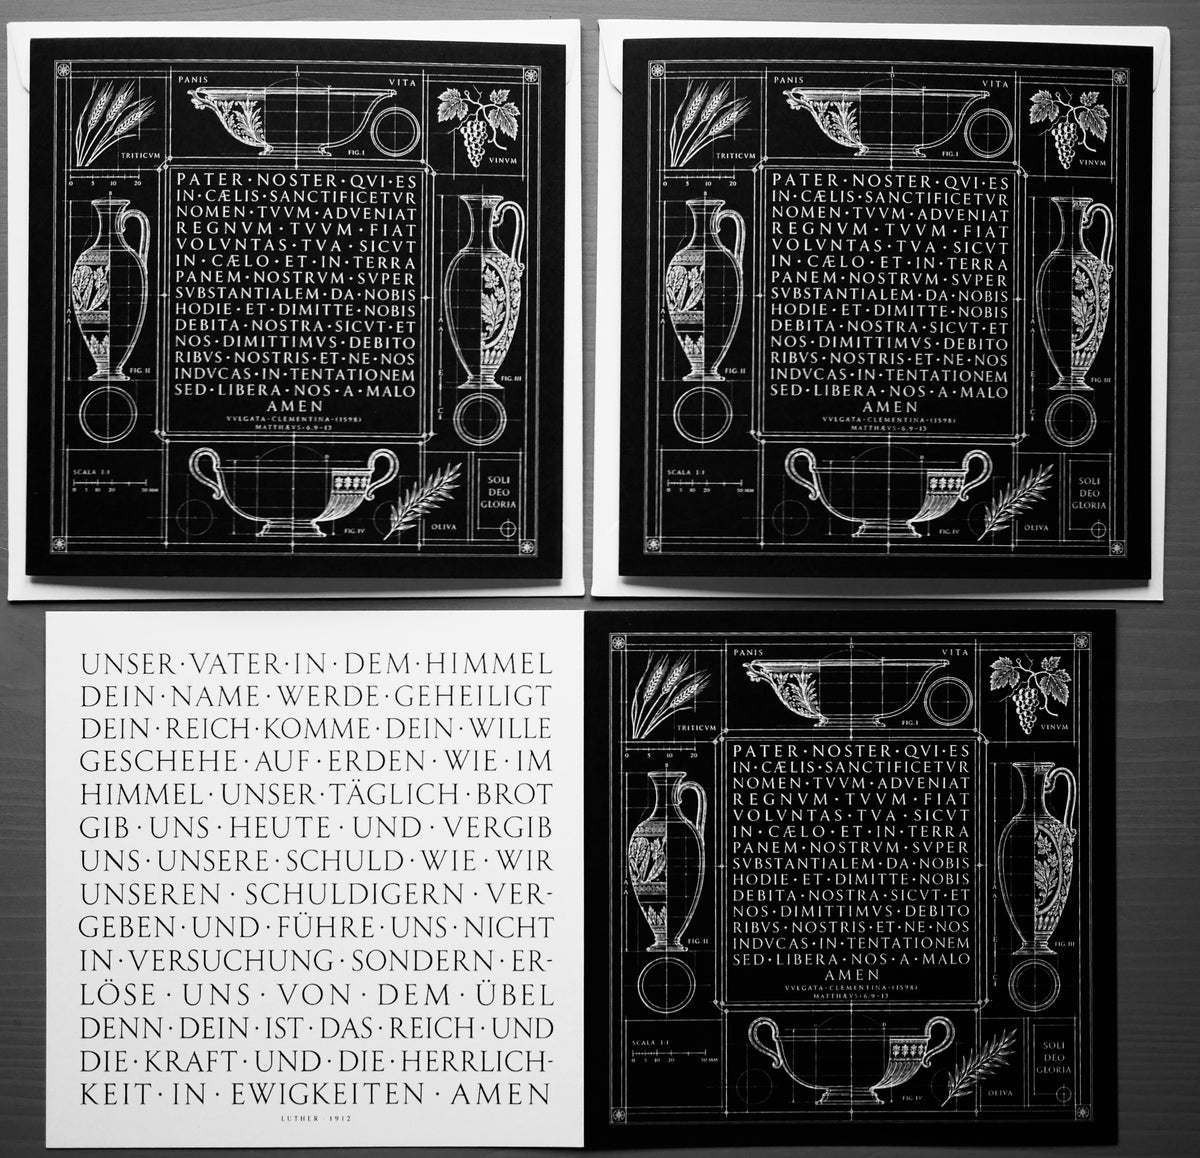 PANIS
VITA
TRITICVM
FIG. I
VINVM
0 5 10 20
PATER·NOSTER·QVI·ES
IN·CÆLIS·SANCTIFICETVR
NOMEN·TVVM·ADVENIAT
REGNVM·TVVM·FIAT
VOLVNTAS·TVA·SICVT
IN·CÆLO·ET·IN·TERRA
PANEM·NOSTRVM·SVPER
SVBSTANTIALEM·DA·NOBIS
HODIE·ET·DIMITTE·NOBIS
DEBITA·NOSTRA·SICVT·ET
NOS·DIMITTIMVS·DEBITO
RIBVS·NOSTRIS·ET·NE·NOS
INDVCAS·IN·TENTATIONEM
SED·LIBERA·NOS·A·MALO
AMEN
VVLGATA·CLEMENTINA·(1598)
MATTHÆVS·6,9-13
FIG. II
FIG. III
SCALA 1:1
0 5 10 20 50 MM
FIG. IV
OLIVA
SOLI
DEO
GLORIA
PANIS
VITA
TRITICVM
FIG. I
VINVM
0 5 10 20
PATER·NOSTER·QVI·ES
IN·CÆLIS·SANCTIFICETVR
NOMEN·TVVM·ADVENIAT
REGNVM·TVVM·FIAT
VOLVNTAS·TVA·SICVT
IN·CÆLO·ET·IN·TERRA
PANEM·NOSTRVM·SVPER
SVBSTANTIALEM·DA·NOBIS
HODIE·ET·DIMITTE·NOBIS
DEBITA·NOSTRA·SICVT·ET
NOS·DIMITTIMVS·DEBITO
RIBVS·NOSTRIS·ET·NE·NOS
INDVCAS·IN·TENTATIONEM
SED·LIBERA·NOS·A·MALO
AMEN
VVLGATA·CLEMENTINA·(1598)
MATTHÆVS·6,9-13
FIG. II
FIG. III
SCALA 1:1
0 5 10 20 50 MM
FIG. IV
OLIVA
SOLI
DEO
GLORIA
UNSER·VATER·IN·DEM·HIMMEL
DEIN·NAME·WERDE·GEHEILIGT
DEIN·REICH·KOMME·DEIN·WILLE
GESCHEHE·AUF·ERDEN·WIE·IM
HIMMEL·UNSER·TÄGLICH·BROT
GIB·UNS·HEUTE·UND·VERGIB
UNS·UNSERE·SCHULD·WIE·WIR
UNSEREN·SCHULDIGERN·VER-
GEBEN·UND·FÜHRE·UNS·NICHT
IN·VERSUCHUNG·SONDERN·ER-
LÖSE·UNS·VON·DEM·ÜBEL
DENN·DEIN·IST·DAS·REICH·UND
DIE·KRAFT·UND·DIE·HERRLICH-
KEIT·IN·EWIGKEITEN·AMEN
LUTHER·1912
PANIS
VITA
TRITICVM
FIG. I
VINVM
0 5 10 20
PATER·NOSTER·QVI·ES
IN·CÆLIS·SANCTIFICETVR
NOMEN·TVVM·ADVENIAT
REGNVM·TVVM·FIAT
VOLVNTAS·TVA·SICVT
IN·CÆLO·ET·IN·TERRA
PANEM·NOSTRVM·SVPER
SVBSTANTIALEM·DA·NOBIS
HODIE·ET·DIMITTE·NOBIS
DEBITA·NOSTRA·SICVT·ET
NOS·DIMITTIMVS·DEBITO
RIBVS·NOSTRIS·ET·NE·NOS
INDVCAS·IN·TENTATIONEM
SED·LIBERA·NOS·A·MALO
AMEN
VVLGATA·CLEMENTINA·(1598)
MATTHÆVS·6,9-13
FIG. II
FIG. III
SCALA 1:1
0 5 10 20 50 MM
FIG. IV
OLIVA
SOLI
DEO
GLORIA